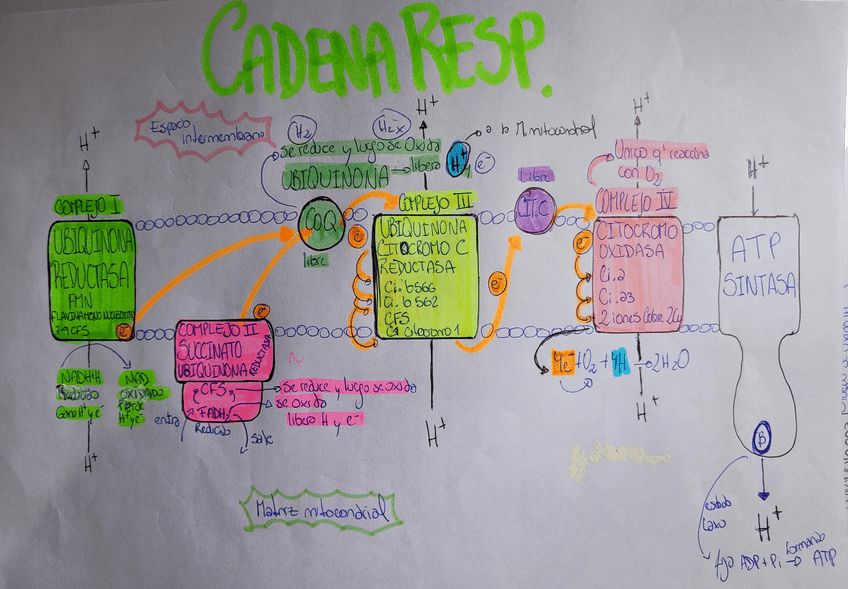 CADENA RESP.
Espacio
intermembrana
H₂
H₂x
H⁺
a la M mitocondrial
Se reduce y luego se Oxida
UBIQUINONA → libera H⁺ y e⁻
H⁺
COMPLEJO I
UBIQUINONA
REDUCTASA
FMN
7-9 CFS
e⁻
NADH+H
Reducido
Gana H⁺ y e⁻
NAD
OXIDADO
H⁺ y e⁻
H⁺
CoQ
libre
e⁻
COMPLEJO II
SUCCINATO
UBIQUINONA REDUCTASA
CFS
FADH₂
Reducido
entra
sale
e⁻
Se reduce y luego se oxida
Se oxida
libera H y e⁻
COMPLEJO III
UBIQUINONA
CITOCROMO C
REDUCTASA
Ci. b 566
Ci. b 562
CFS
C1 citocromo 1
e⁻
H⁺
libre
CIT.C
H⁺
Unico q' reacciona
con O₂
COMPLEJO IV
CITOCROMO
OXIDASA
Ci. a
Ci. a3
2 iones Cobre 2Cu
e⁻
4e⁻ + O₂ + 4H → 2H₂O
H⁺
H⁺
ATP
SINTASA
β
H⁺
estado
Laxo
fija ADP + Pi → formando ATP
Matriz mitocondrial